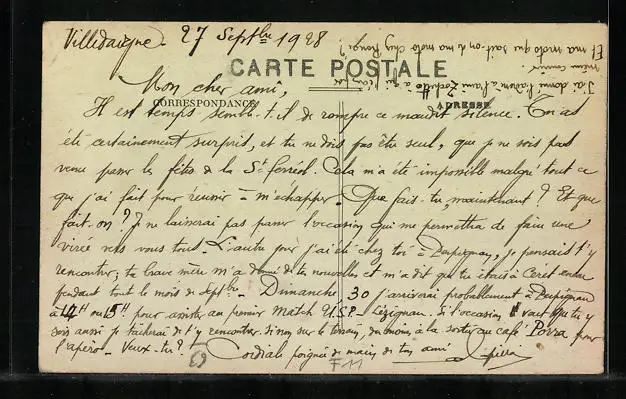 Villedaigne - 27 Septbre 1928
CARTE POSTALE
CORRESPONDANCE
ADRESSE
Mon cher ami,
Il est temps semble-t-il de rompre ce maudit silence. Tu as
été certainement surpris, et tu ne dois pas être seul, que je ne sois pas
venu passer les fêtes de la St Ferréol. Cela m'a été impossible malgré tout ce
que j'ai fait pour réussir à m'échapper. Que fais-tu maintenant ? Et que
fait-on ? Je ne laisserai pas passer l'occasion qui me permettra de faire une
virée vers vous tous. L'autre jour j'ai été chez toi à Perpignan, je pensais t'y
rencontrer; ta brave mère m'a donné de tes nouvelles et m'a dit que tu étais à Céret
pendant tout le mois de Septbre. Dimanche 30 j'arriverai probablement à Perpignan
à 14H ou 15H pour assister au premier match U.S.P - Lézignan. Si l'occasion veut que tu y
sois aussi je tâcherai de t'y rencontrer sinon sur le terrain, du moins à la sortie au café Povra pour
l'apéro - Veux-tu ? Cordiale poignée de mains de ton ami
J'ai donné l'adresse à l'ami
même
Et ma moto que fait-on de ma moto chez
69
F 11